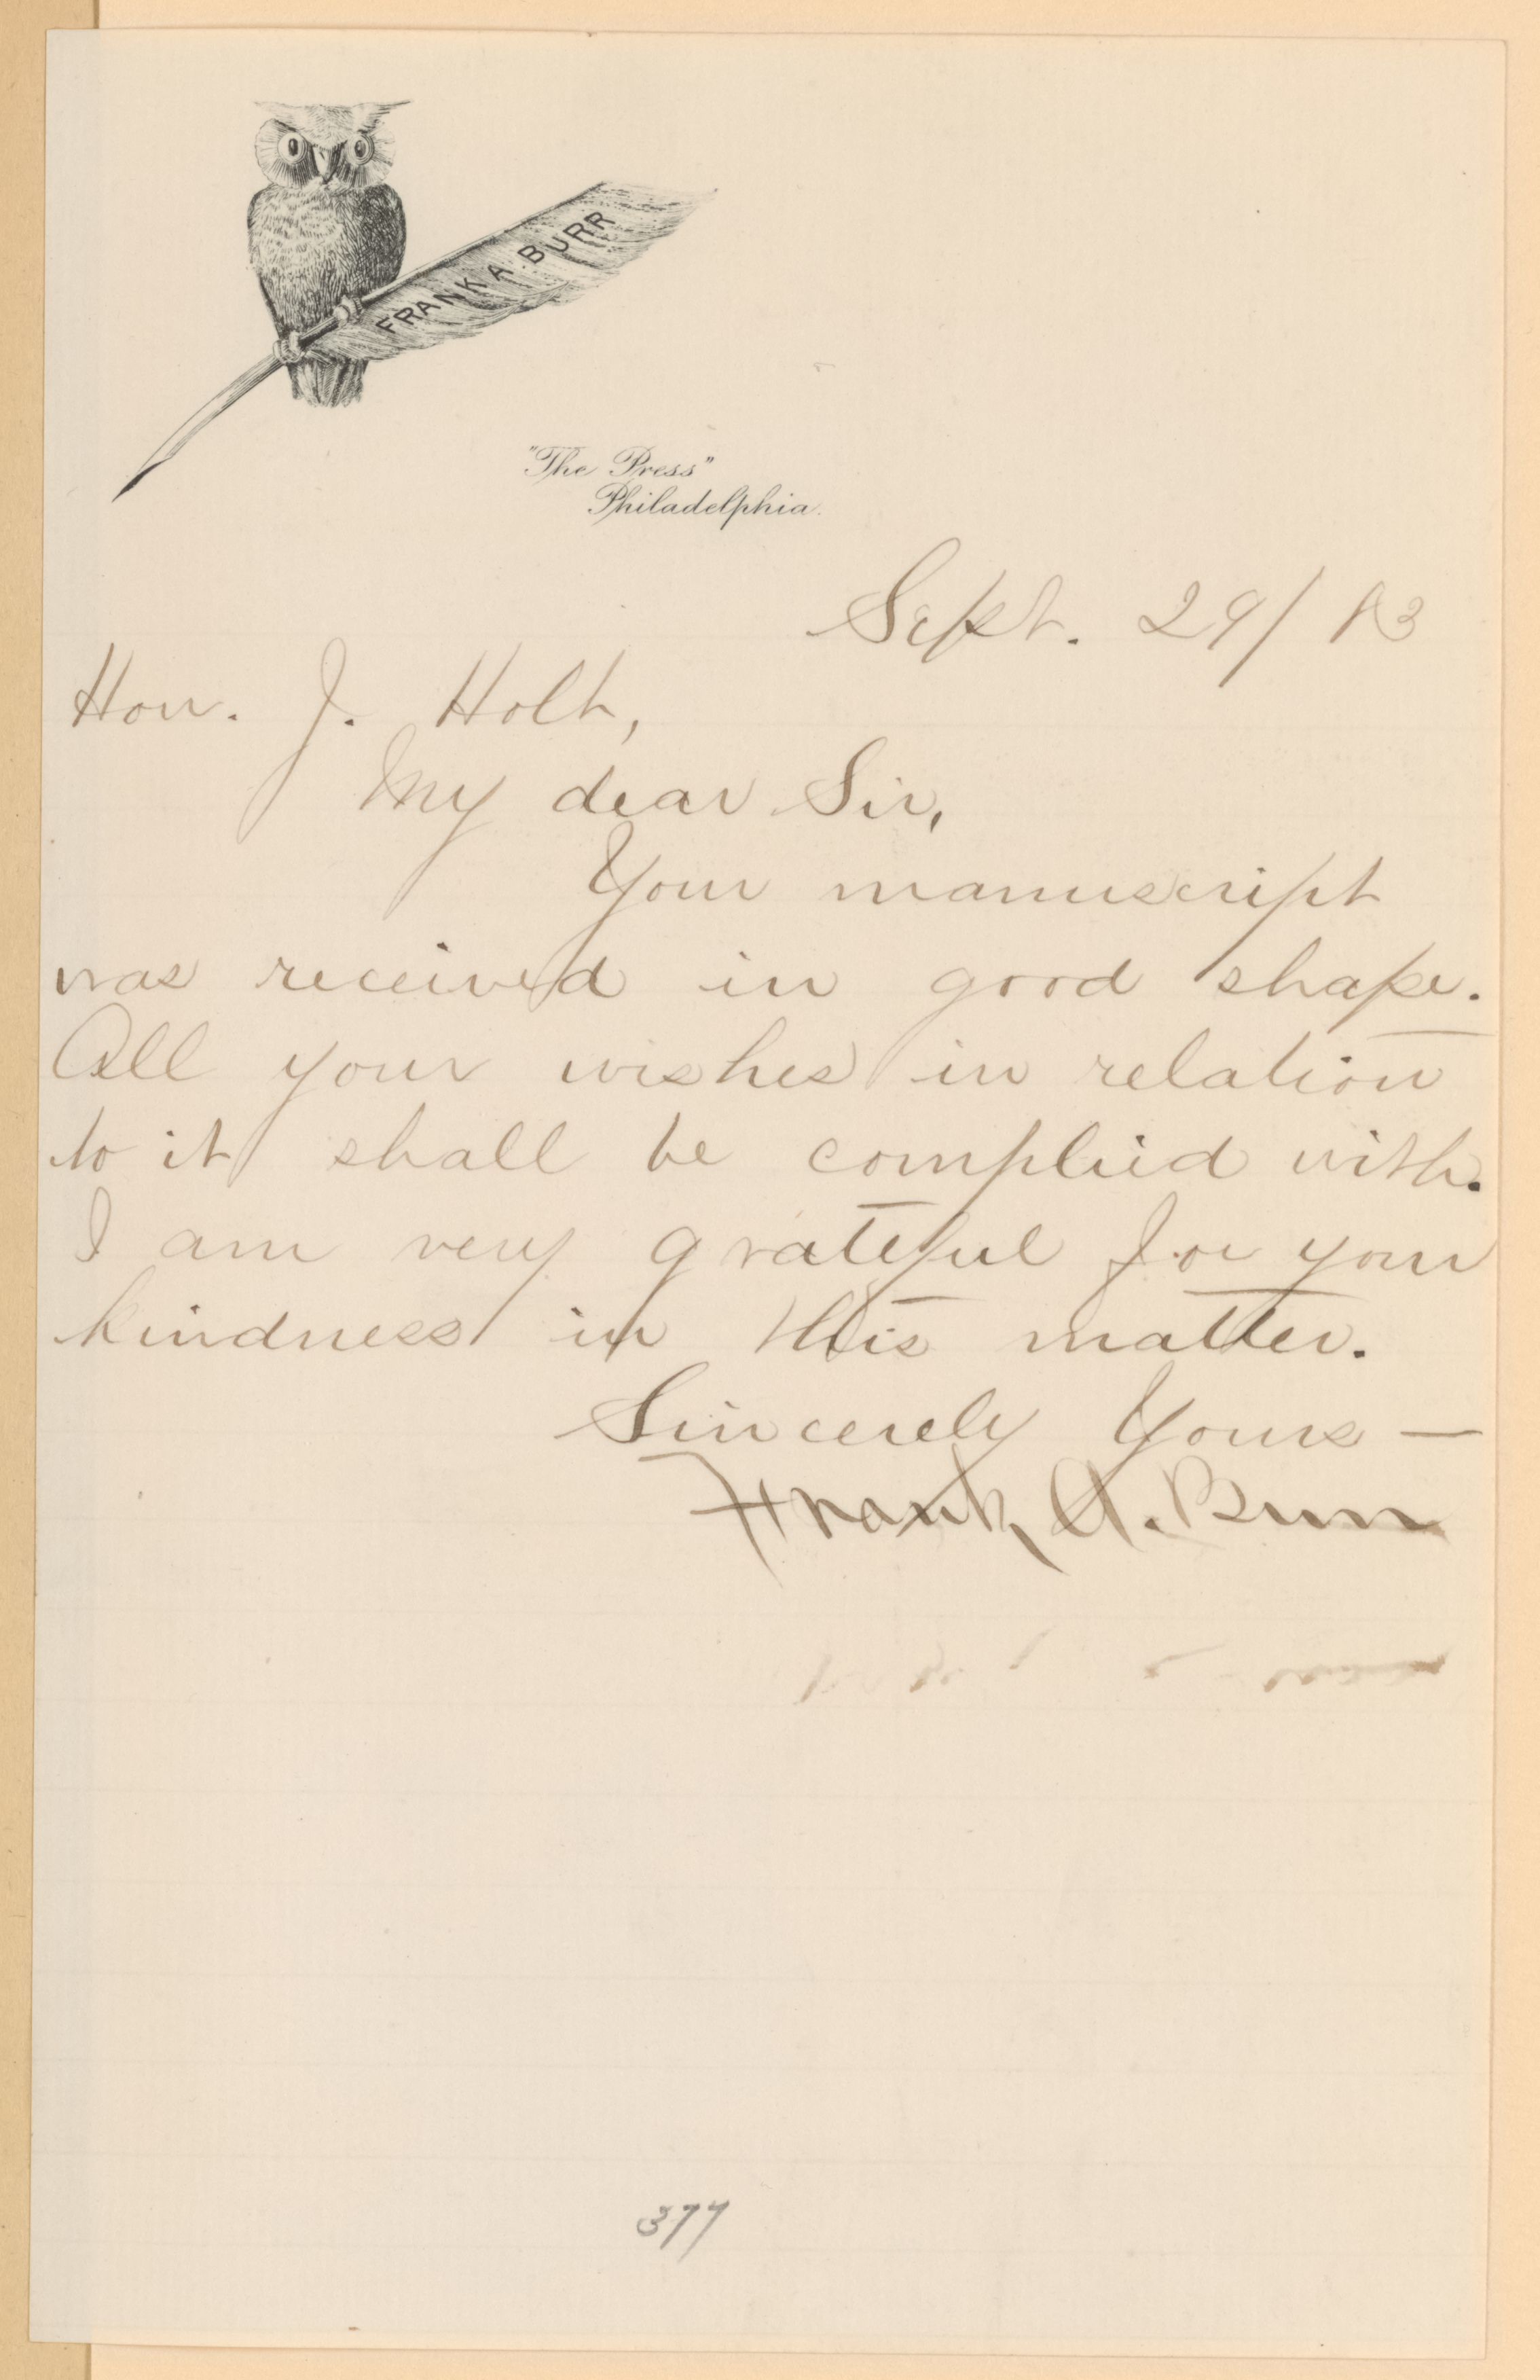 FRANK A. BURR
"The Press"
Philadelphia.
Sept. 29/83
Hon. J. Holt,
My dear Sir,
Your manuscript
was received in good shape.
All your wishes in relation
to it shall be complied with.
I am very grateful for your
kindness in this matter.
Sincerely Yours —
Frank A. Burr
377